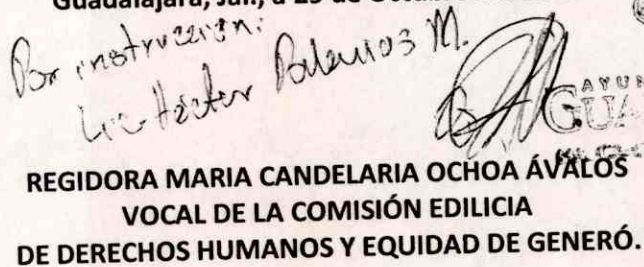 Guadalajara, Jal, a 29 de Octubre
Por instrucción:
Lic Héctor Palacios M.
AYU
GUA
REGIDORA MARIA CANDELARIA OCHOA ÁVALOS
VOCAL DE LA COMISIÓN EDILICIA
DE DERECHOS HUMANOS Y EQUIDAD DE GENERÓ.